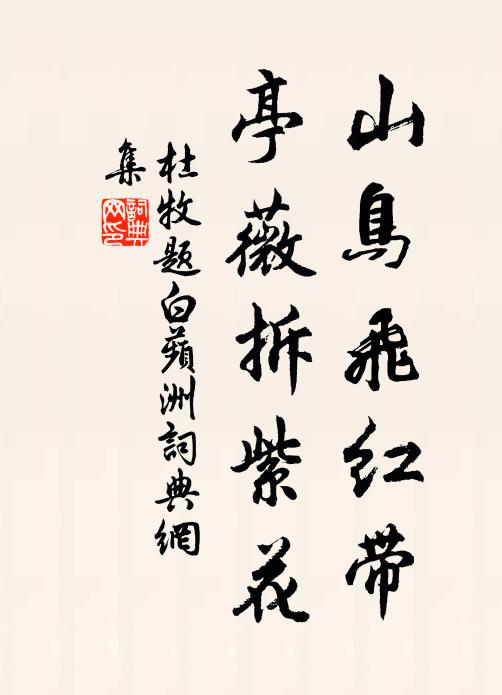 山鳥飛红带
亭薇拆紫花
杜牧题白蘋洲詞典網
集
詞典網印